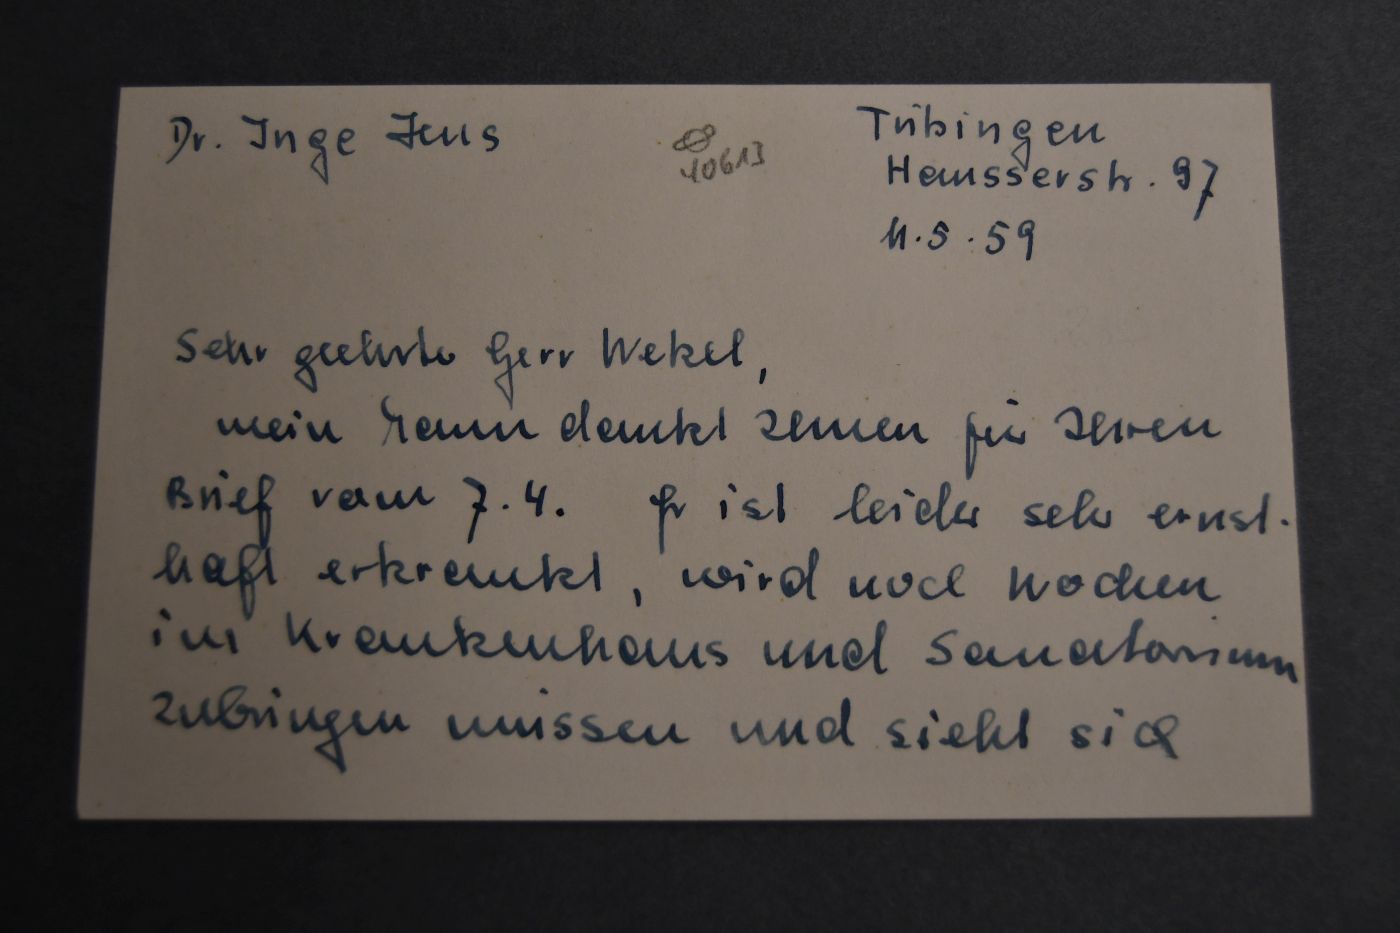 Dr. Inge Jens
10613
Tübingen
Hausserstr. 97
11.5.59
Sehr geehrter Herr Wekel,
mein Mann dankt Ihnen für Ihren
Brief vom 7.4. Er ist leider sehr ernst-
haft erkrankt, wird noch Wochen
im Krankenhaus und Sanatorium
zubringen müssen und sieht sich